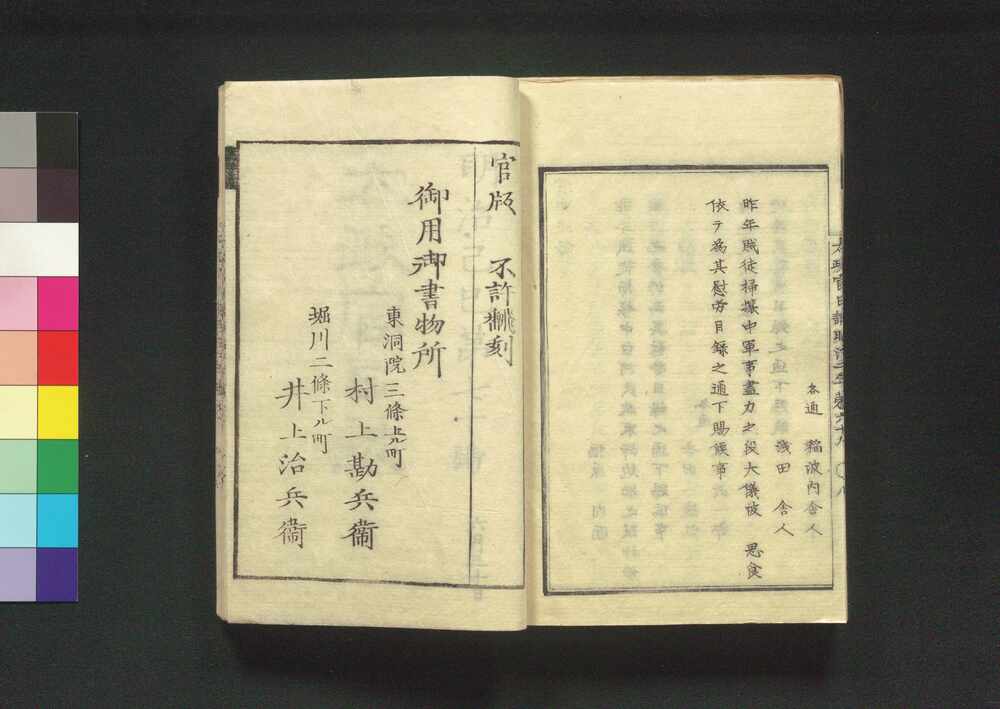 各通 稲波内舎人
浅田 舎人
昨年賊徒掃攘中軍事盡力之段大儀被 思食
依テ為其慰労目録之通下賜候事
太政官日誌明治二年第六十九 〇八
官版 不許飜刻
御用御書物所
東洞院三條上ル町
村上勘兵衞
堀川二條下ル町
井上治兵衞